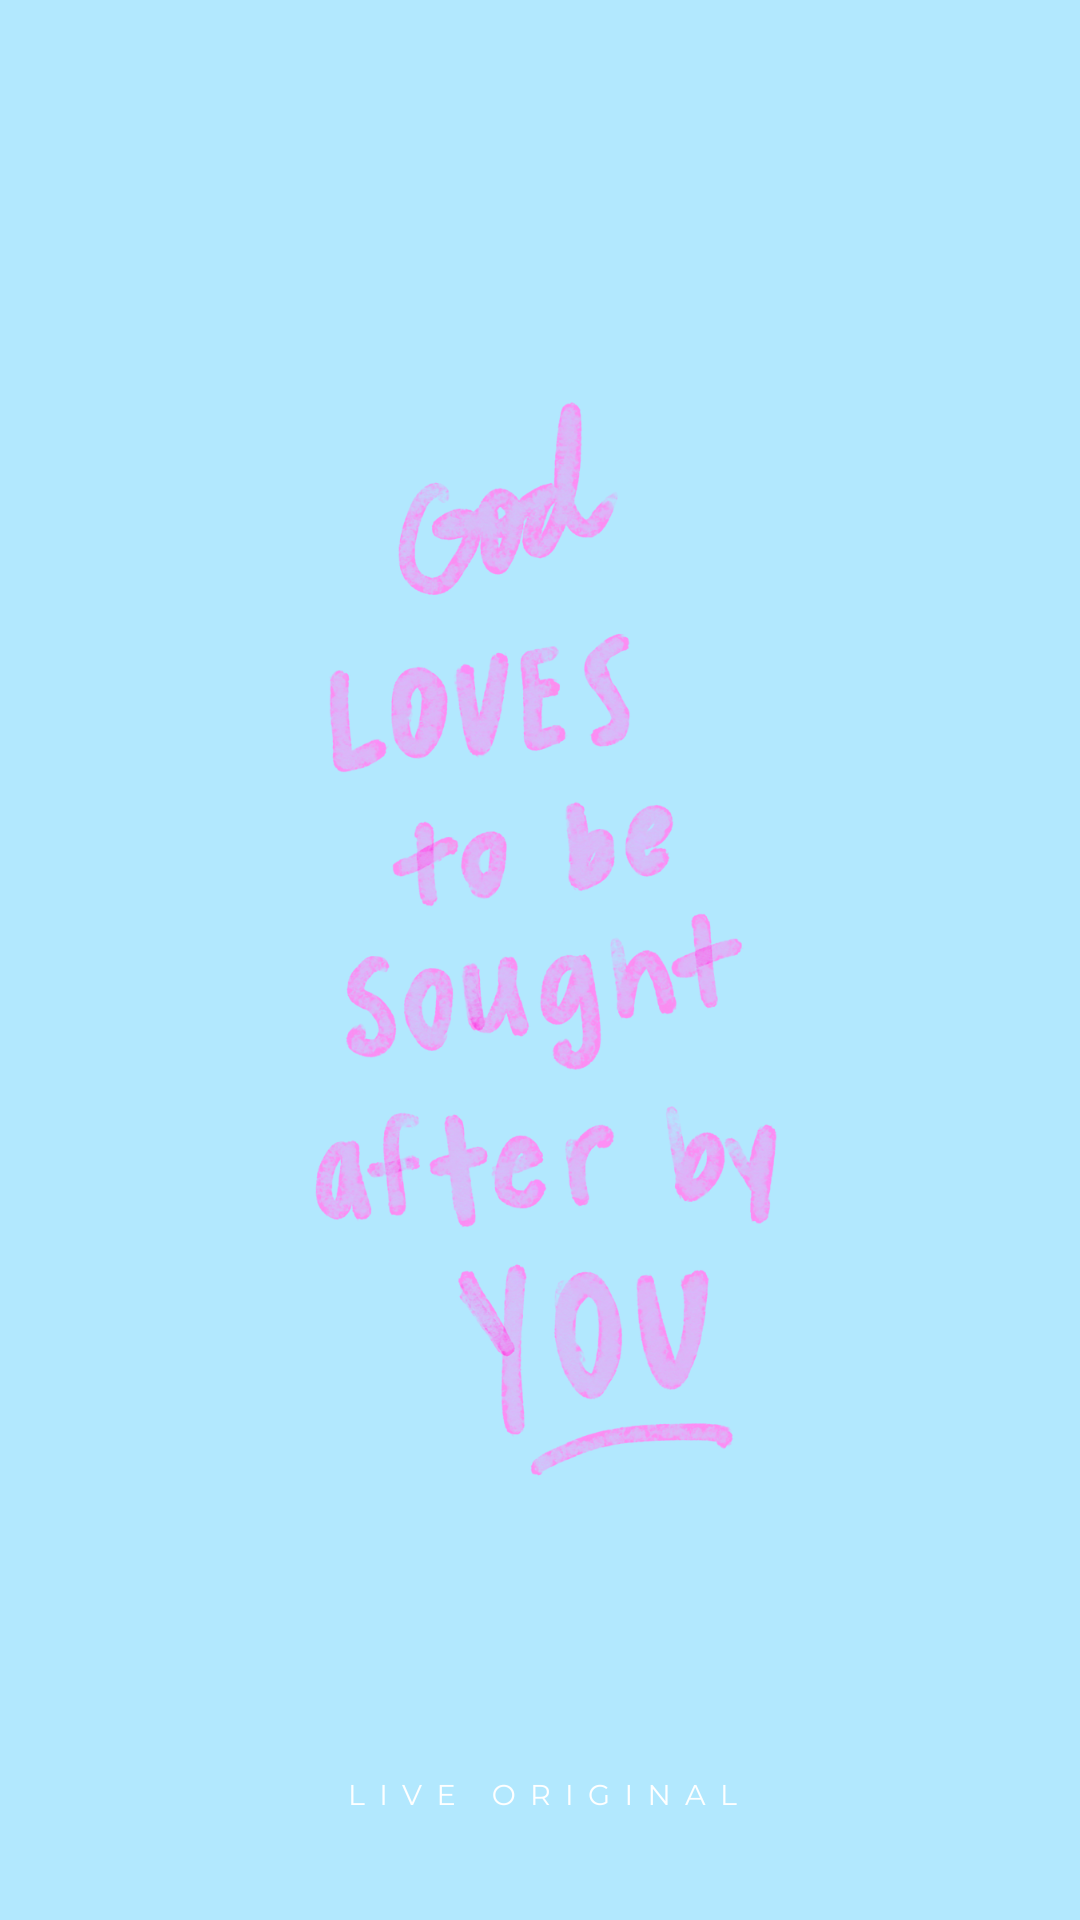 God
LOVES
to be
sought
after by
YOU
LIVE ORIGINAL